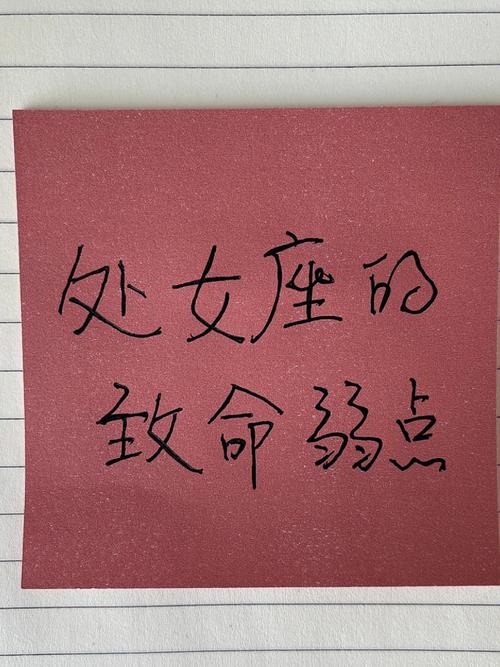 处女座的
致命弱点